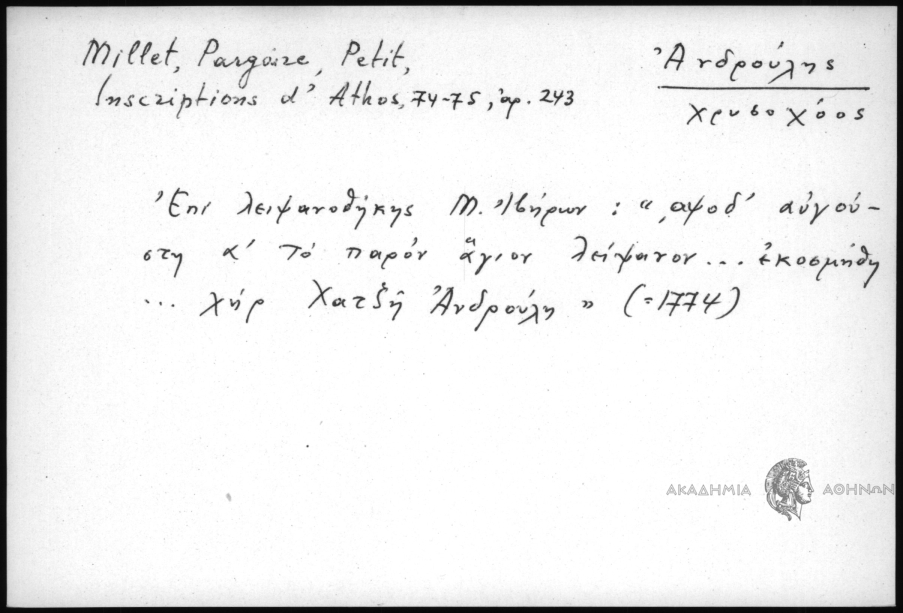 Millet, Pargoire, Petit,
Inscriptions d' Athos, 74-75, ἀρ. 243
Ἀνδρούλης
χρυσοχόος
Ἐπὶ λειψανοθήκης Μ. Ἰβήρων : "͵αψοδ' αὐγού-
στῃ α' τὸ παρὸν ἅγιον λείψανον ... ἐκοσμήθη
... χὴρ Χατζῆ Ἀνδρούλη" (=1774)
ΑΚΑΔΗΜΙΑ ΑΘΗΝΩΝ